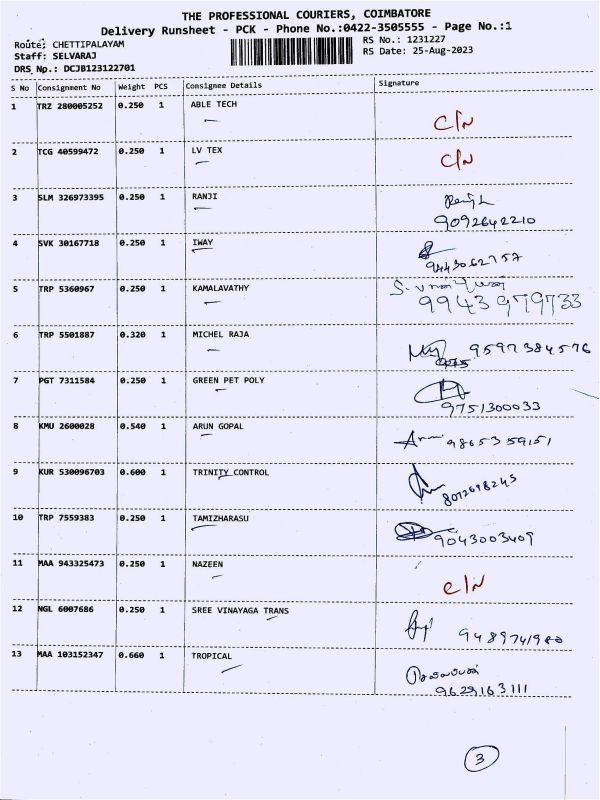 THE PROFESSIONAL COURIERS, COIMBATORE
Delivery Runsheet - PCK - Phone No.:0422-3505555 - Page No.:1
Route: CHETTIPALAYAM RS No.: 1231227
Staff: SELVARAJ RS Date: 25-Aug-2023
DRS Np.: DCJB123122701
S No Consignment No Weight PCS Consignee Details Signature
1 TRZ 280005252 0.250 1 ABLE TECH
C/N
2 TCG 40599472 0.250 1 LV TEX
C/N
3 SLM 326973395 0.250 1 RANJI
9092642210
4 SVK 30167718 0.250 1 IWAY
9443062757
5 TRP 5360967 0.250 1 KAMALAVATHY
9943979733
6 TRP 5501887 0.320 1 MICHEL RAJA
9597384576
7 PGT 7311584 0.250 1 GREEN PET POLY
9751300033
8 KMU 2600028 0.540 1 ARUN GOPAL
9865359151
9 KUR 530096703 0.600 1 TRINITY CONTROL
10 TRP 7559383 0.250 1 TAMIZHARASU
9043003409
11 MAA 943325473 0.250 1 NAZEEN
C/N
12 NGL 6007686 0.250 1 SREE VINAYAGA TRANS
9489741980
13 MAA 103152347 0.660 1 TROPICAL
9629163111
3